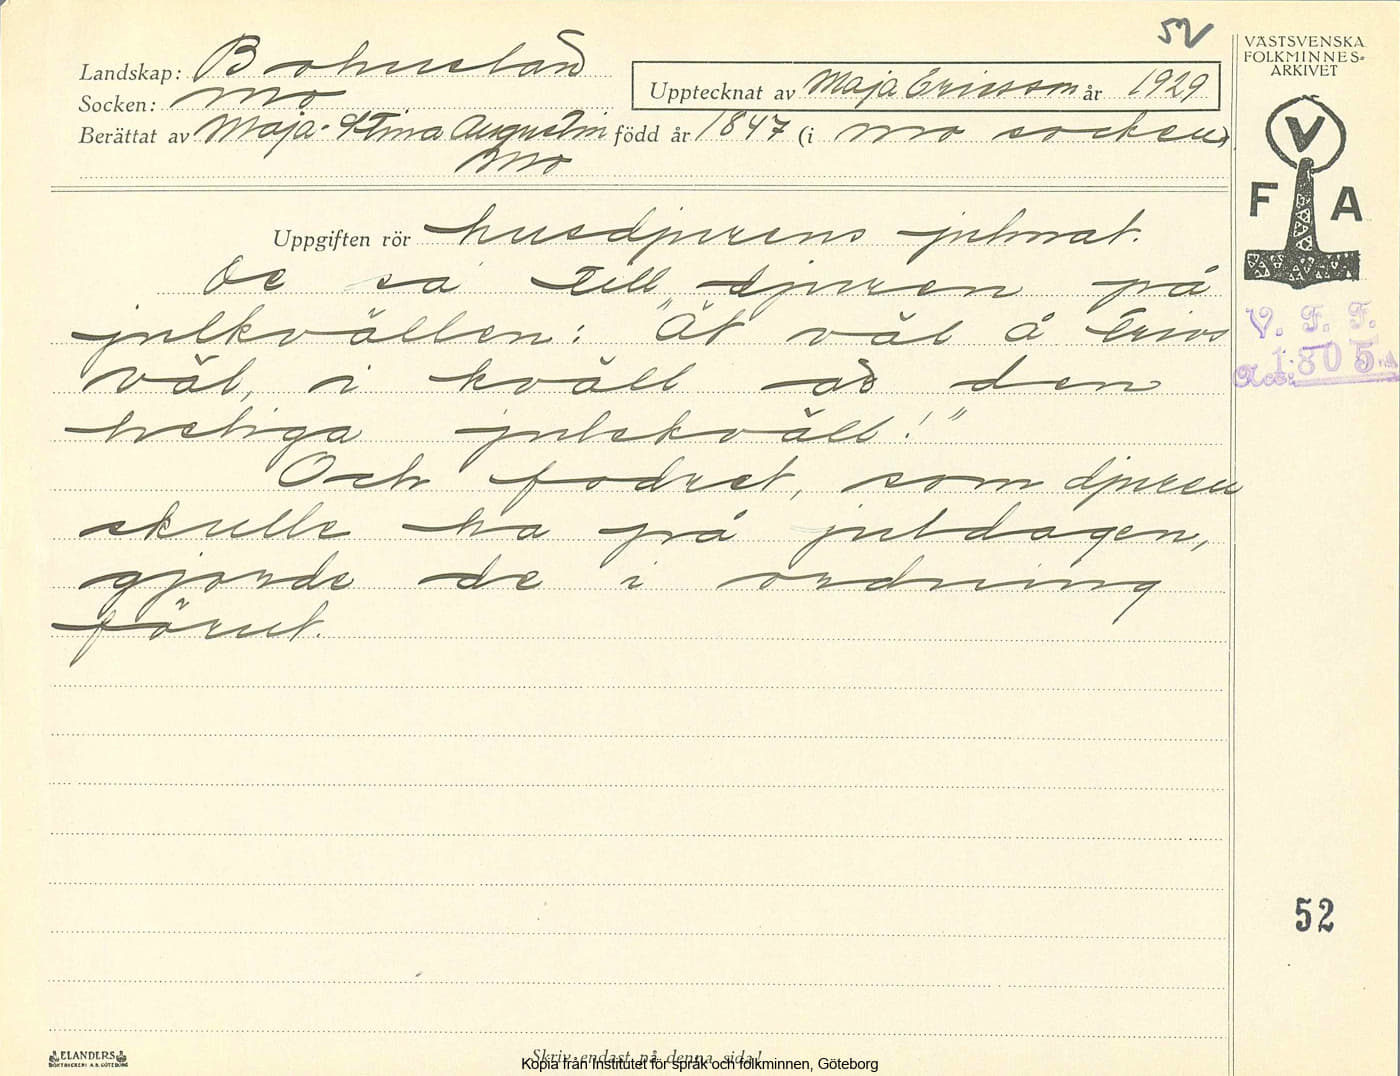 52
VÄSTSVENSKA
FOLKMINNES-
ARKIVET
Landskap: Bohuslän
Upptecknat av Maja Ericsson år 1929
Socken: Mo
Berättat av Maja-Stina Augustin född år 1847 (i Mo socken)
Mo
V
F A
Uppgiften rör husdjurens julmat.
De sa till djuren på
julkvällen: "Ät väl å trivs
väl, i kväll ad den
heliga julekväll!"
Och fodret, som djuren
skulle ha på juldagen,
gjorde de i ordning
förut.
V. F. F.
Acc: 1805
52
ELANDERS
BOKTRYCKERI A.B. GÖTEBORG
Skriv endast på denna sida!
Kopia från Institutet för språk och folkminnen, Göteborg